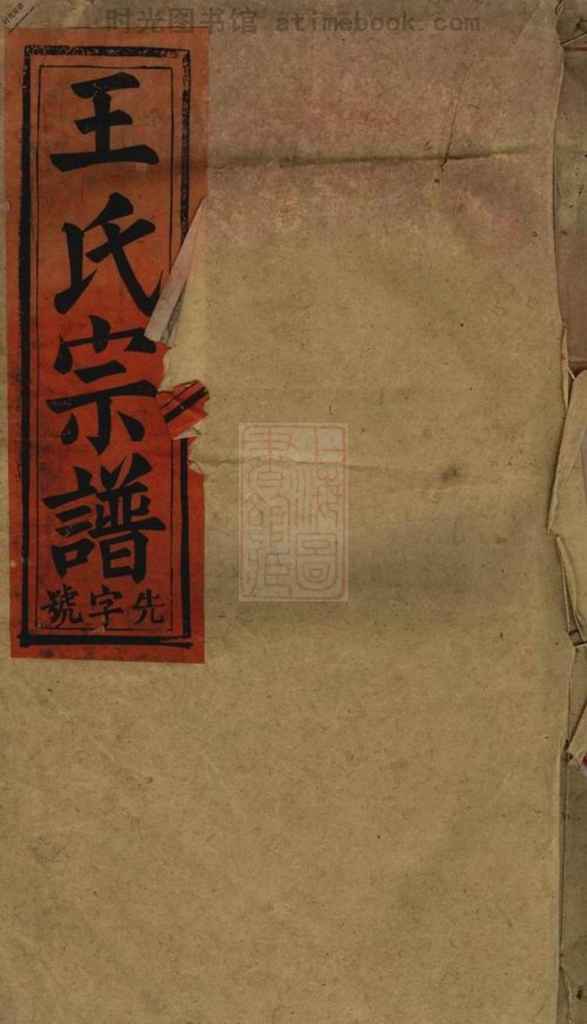 时光图书馆 atimebook.com
王氏宗譜
先字號